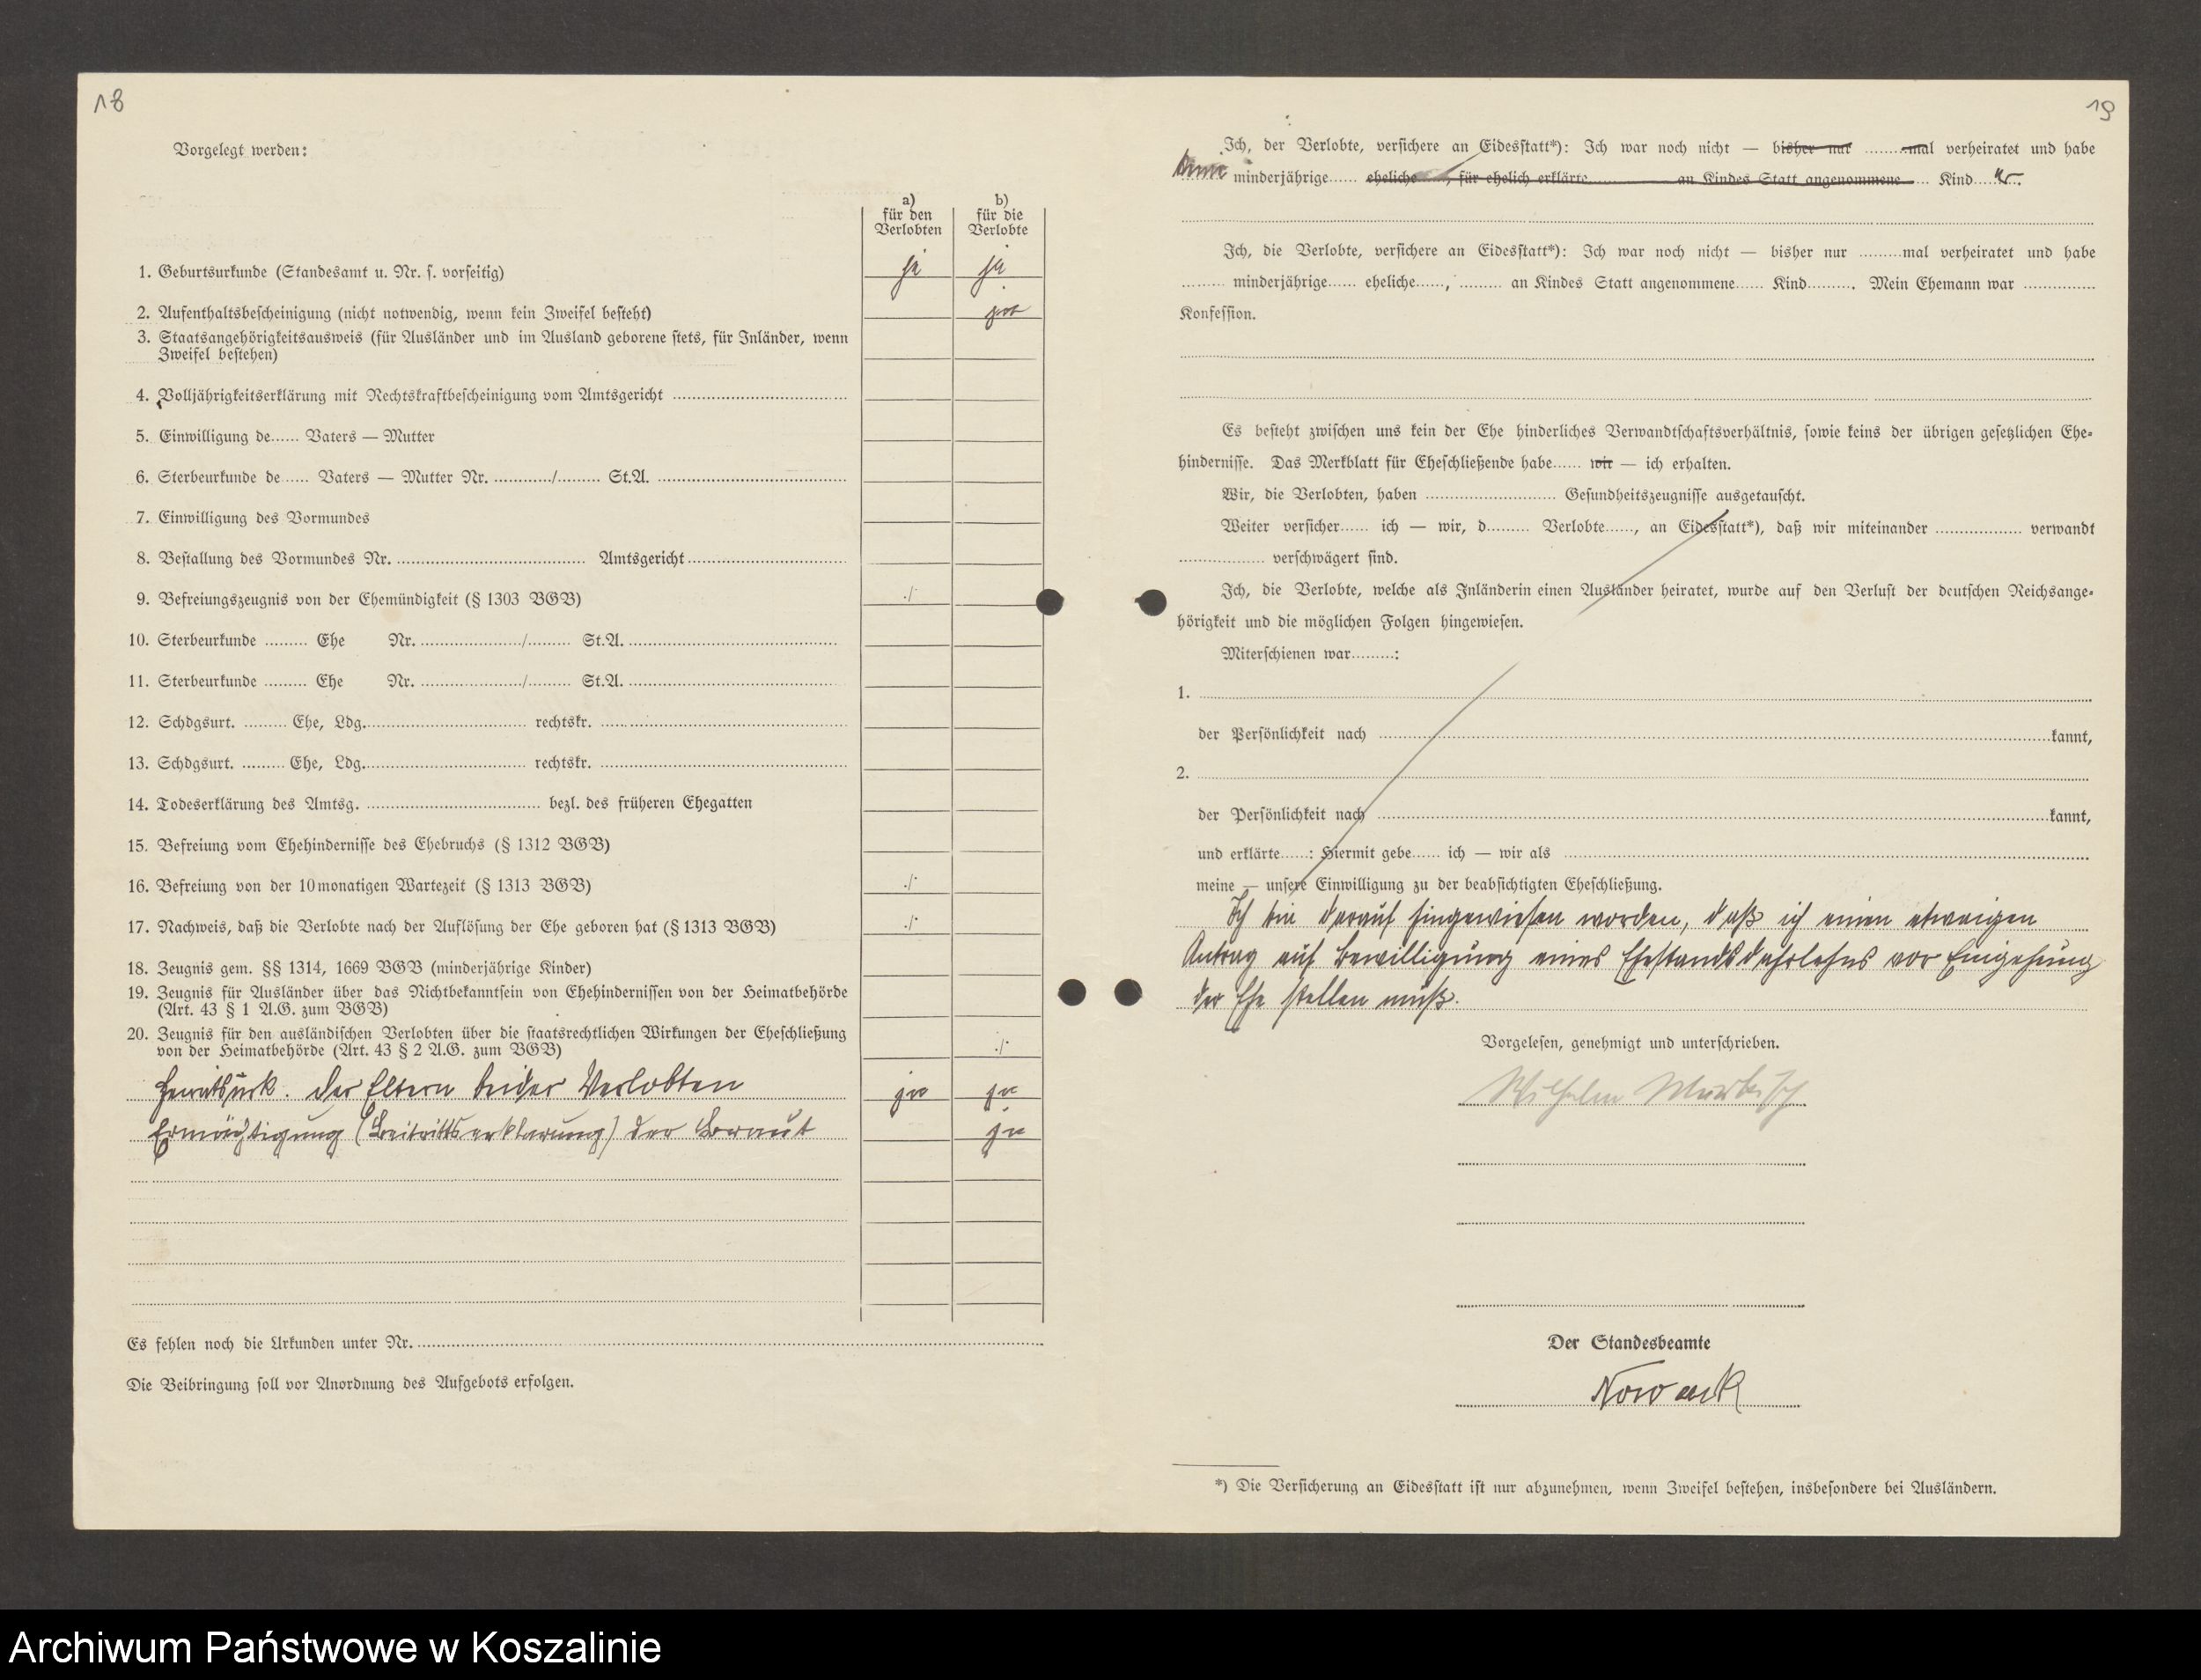 18
Vorgelegt werden:
a) für den Verlobten
b) für die Verlobte
1. Geburtsurkunde (Standesamt u. Nr. s. vorseitig) ja ja
2. Aufenthaltsbescheinigung (nicht notwendig, wenn kein Zweifel besteht)
3. Staatsangehörigkeitsausweis (für Ausländer und im Ausland geborene stets, für Inländer, wenn
Zweifel bestehen)
4. Volljährigkeitserklärung mit Rechtskraftbescheinigung vom Amtsgericht ........
5. Einwilligung de...... Vaters — Mutter
6. Sterbeurkunde de...... Vaters — Mutter Nr. ............/.......... St.A. ........
7. Einwilligung des Vormundes
8. Bestallung des Vormundes Nr. ........ Amtsgericht ........
9. Befreiungszeugnis von der Ehemündigkeit (§ 1303 BGB) ./.
10. Sterbeurkunde ......... Ehe Nr. ......../......... St.A. ........
11. Sterbeurkunde ......... Ehe Nr. ......../......... St.A. ........
12. Schdgsurt. ......... Ehe, Ldg. ........ rechtskr. ........
13. Schdgsurt. ......... Ehe, Ldg. ........ rechtskr. ........
14. Todeserklärung des Amtsg. ........ bezl. des früheren Ehegatten
15. Befreiung vom Ehehindernisse des Ehebruchs (§ 1312 BGB)
16. Befreiung von der 10monatigen Wartezeit (§ 1313 BGB) ./.
17. Nachweis, daß die Verlobte nach der Auflösung der Ehe geboren hat (§ 1313 BGB) ./.
18. Zeugnis gem. §§ 1314, 1669 BGB (minderjährige Kinder)
19. Zeugnis für Ausländer über das Nichtbekanntsein von Ehehindernissen von der Heimatbehörde
(Art. 43 § 1 A.G. zum BGB)
20. Zeugnis für den ausländischen Verlobten über die staatsrechtlichen Wirkungen der Eheschließung
von der Heimatbehörde (Art. 43 § 2 A.G. zum BGB) ./.
Heiratsurk. der Eltern beider Verlobten ja ja
Ermächtigung (Beitrittserklärung) der Braut ja
Es fehlen noch die Urkunden unter Nr. ........
Die Beibringung soll vor Anordnung des Aufgebots erfolgen.
19
Ich, der Verlobte, versichere an Eidesstatt*): Ich war noch nicht — bisher nur .........mal verheiratet und habe
minderjährige...... eheliche ......, für ehelich erklärte ........ an Kindes Statt angenommene .... Kinder.
Ich, die Verlobte, versichere an Eidesstatt*): Ich war noch nicht — bisher nur .........mal verheiratet und habe
......... minderjährige...... eheliche......, ......... an Kindes Statt angenommene...... Kind.......... Mein Ehemann war ........
Konfession.
Es besteht zwischen uns kein der Ehe hinderliches Verwandtschaftsverhältnis, sowie keins der übrigen gesetzlichen Ehe-
hindernisse. Das Merkblatt für Eheschließende habe...... wir — ich erhalten.
Wir, die Verlobten, haben ........ Gesundheitszeugnisse ausgetauscht.
Weiter versicher...... ich — wir, d......... Verlobte......, an Eidesstatt*), daß wir miteinander ........ verwandt
........ verschwägert sind.
Ich, die Verlobte, welche als Inländerin einen Ausländer heiratet, wurde auf den Verlust der deutschen Reichsange-
hörigkeit und die möglichen Folgen hingewiesen.
Miterschienen war.........:
1. ........
der Persönlichkeit nach ........kannt,
2. ........
der Persönlichkeit nach ........kannt,
und erklärte......: Hiermit gebe...... ich — wir als ........
meine — unsere Einwilligung zu der beabsichtigten Eheschließung.
Ich bin darauf hingewiesen worden, daß ich einen etwaigen
Antrag auf Bewilligung eines Ehestandsdahrlehns vor Eingehung
der Ehe stellen muß.
Vorgelesen, genehmigt und unterschrieben.
Wilhelm
Der Standesbeamte
Nowack
*) Die Versicherung an Eidesstatt ist nur abzunehmen, wenn Zweifel bestehen, insbesondere bei Ausländern.
Archiwum Państwowe w Koszalinie